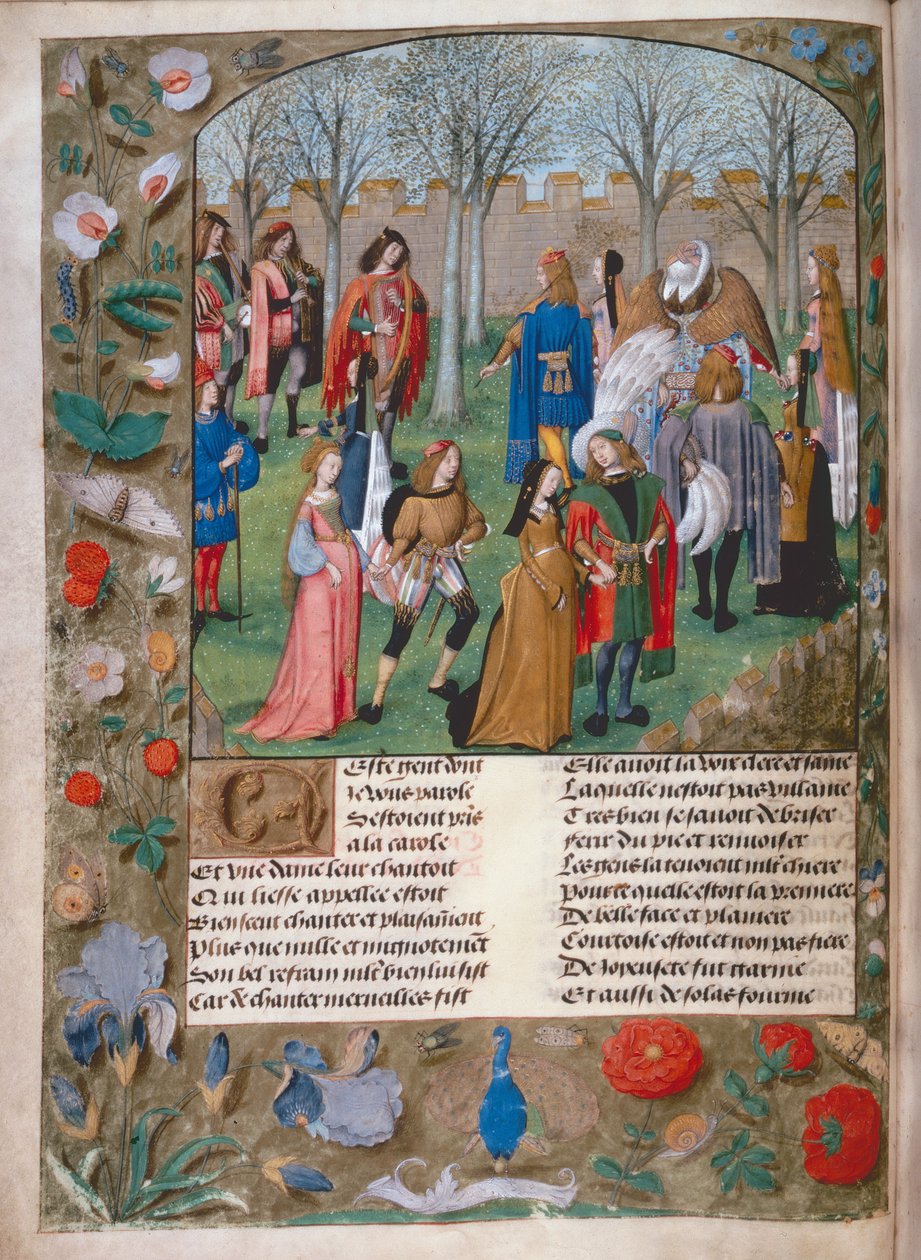 Ceste gent dont
Je vous parole
Sestoient pris
a la carole
Et vne dame leur chantoit
Qui liesse appellee estoit
Bien sceut chanter et plaisam̄ent
Plus que nulle et mignotemēt
Son bel refrain mlt̄ bien lui sist
Car de chanter merueilles fist
Elle auoit la voix clere et saine
Laquelle nestoit pas villaine
Tres bien se sauoit debriser
ferir du pie et renuoiser
Les gens la tenoient mlt̄ chiere
Pource quelle estoit la premiere
De belle face et planiere
Courtoise estoit et non pas fiere
De joyeusete fut
Et aussi de solas fournie